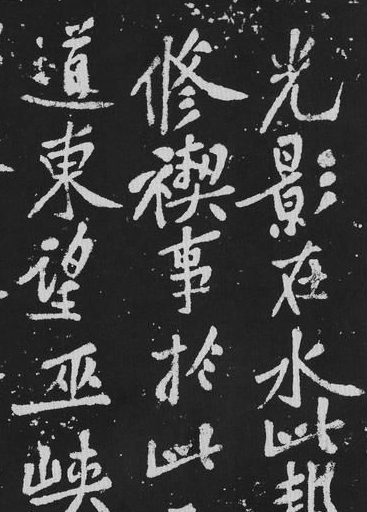 光影在水此
修禊事於此
道東望巫峽